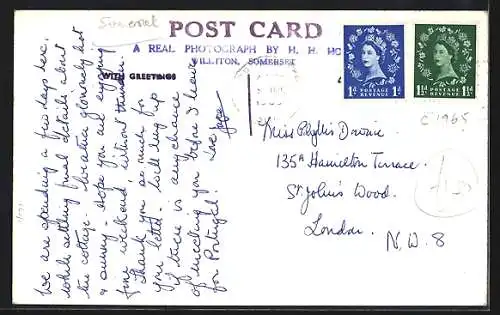 Somerset
POST CARD
A REAL PHOTOGRAPH BY H. H.
WILLITON, SOMERSET
WITH GREETINGS
We are spending a few days here.
while settling final details about
the cottage. Weather gloriously hot
& sunny. Hope you are enjoying
fine weekend, without thunder.
Thank you so much for
your letter. Will ring up
if there is any chance
of meeting you before I leave
for Portugal! Love
POSTAGE
REVENUE
1d 1d
POSTAGE
REVENUE
1½d 1½d
C 1965
Miss Phyllis
135A Hamilton Terrace.
St. John's Wood.
London.
N.W. 8